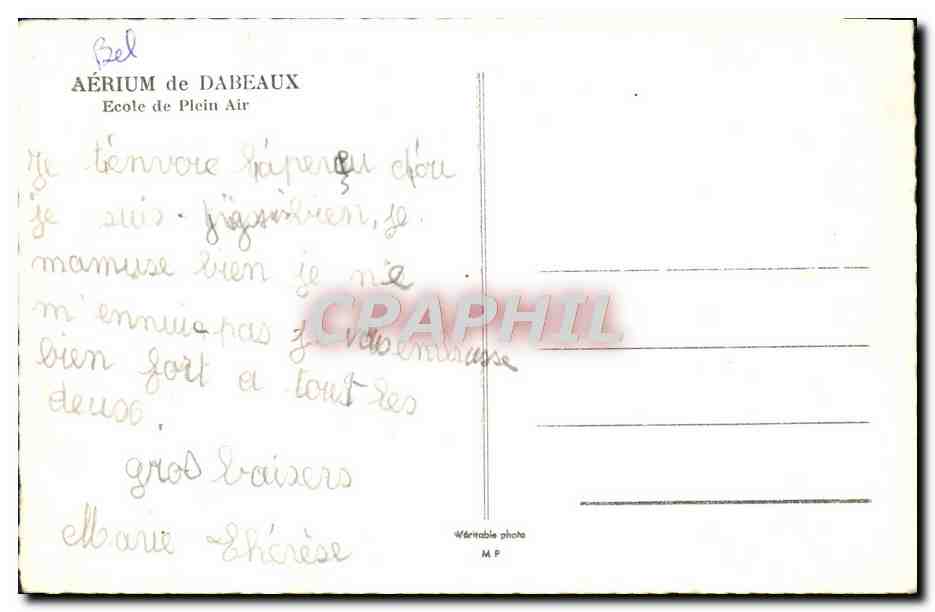 Bel
AÉRIUM de DABEAUX
Ecole de Plein Air
Je t'envoie l'aperçu d'ou
je suis. bien, je
mamuse bien je n'e
m'ennuie pas je vous embrasse
bien fort a tout les
deuxx.
gros baisers
Marie Thérèse
CPARHIL
Véritable photo
M P